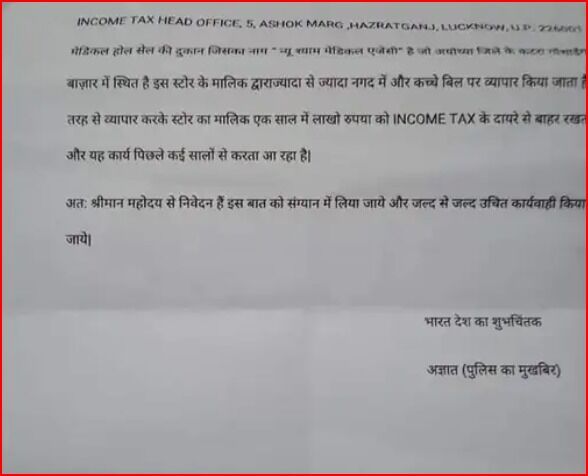 INCOME TAX HEAD OFFICE, 5, ASHOK MARG ,HAZRATGANJ, LUCKNOW, U.P. 226001
मेडिकल होल सेल की दुकान जिसका नाम " न्यू श्याम मेडिकल एजेंसी" है जो अयोध्या जिले के कटरा
बाज़ार में स्थित है इस स्टोर के मालिक द्वाराज्यादा से ज्यादा नगद में और कच्चे बिल पर व्यापार किया जाता है
तरह से व्यापार करके स्टोर का मालिक एक साल में लाखो रुपया को INCOME TAX के दायरे से बाहर रखत
और यह कार्य पिछले कई सालों से करता आ रहा है|
अत: श्रीमान महोदय से निवेदन हैं इस बात को संग्यान में लिया जाये और जल्द से जल्द उचित कार्यवाही किया
जाये|
भारत देश का शुभचिंतक
अज्ञात (पुलिस का मुखबिर)